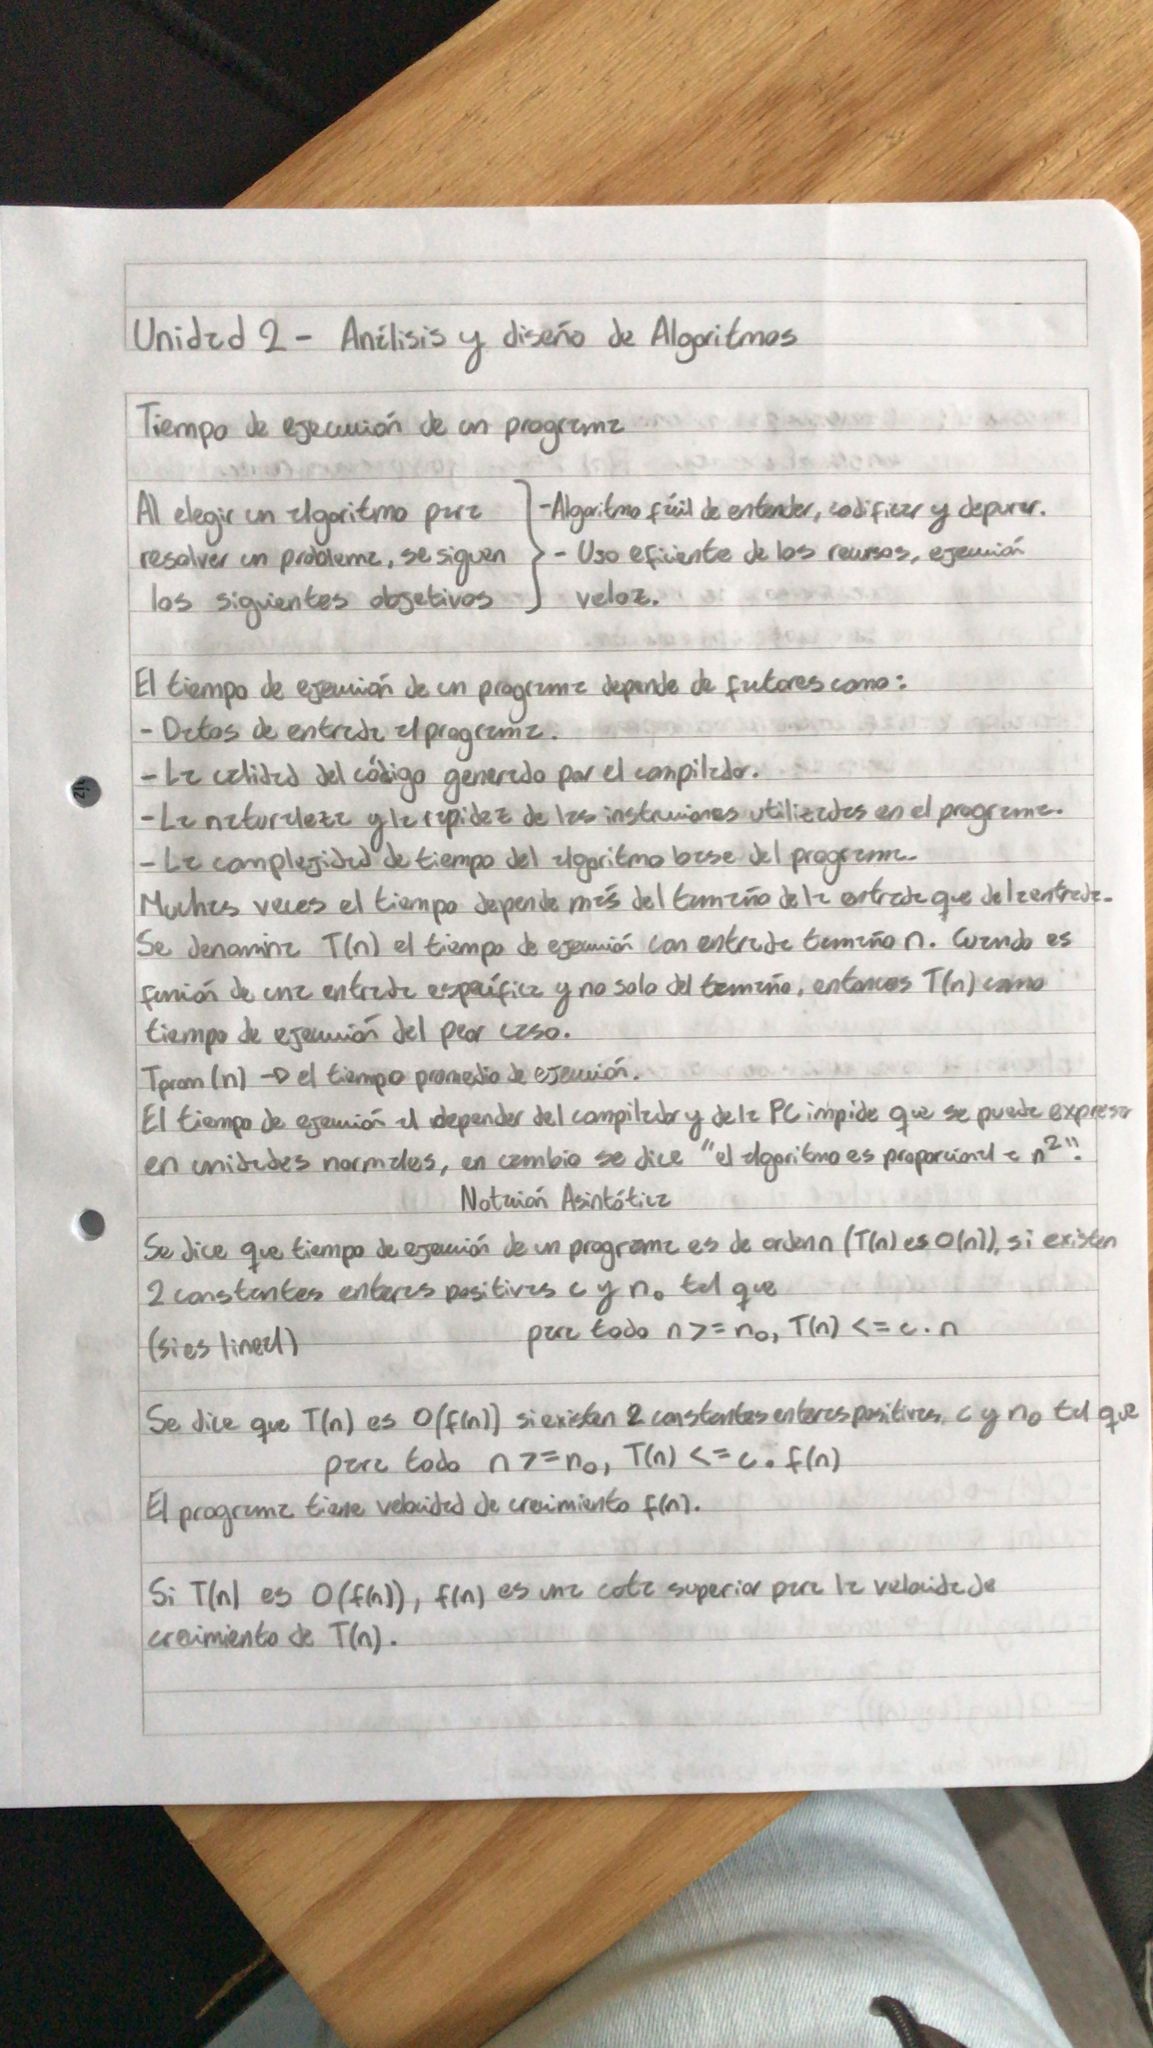 Unidad 2 - Análisis y diseño de Algoritmos
Tiempo de ejecución de un programa
Al elegir un algoritmo para
resolver un problema, se siguen
los siguientes objetivos
- Algoritmo fácil de entender, codificar y depurar.
- Uso eficiente de los recursos, ejecución
veloz.
El tiempo de ejecución de un programa depende de factores como:
- Datos de entrada al programa.
- La calidad del código generado por el compilador.
- La naturaleza y la rapidez de las instrucciones utilizadas en el programa.
- La complejidad de tiempo del algoritmo base del programa.
Muchas veces el tiempo depende más del tamaño de la entrada que de la entrada.
Se denomina T(n) el tiempo de ejecución con entrada tamaño n. Cuando es
función de una entrada específica y no solo del tamaño, entonces T(n) como
tiempo de ejecución del peor caso.
Tprom(n) → el tiempo promedio de ejecución.
El tiempo de ejecución al depender del compilador y de la PC impide que se pueda expresar
en unidades normales, en cambio se dice "el algoritmo es proporcional a n²".
Notación Asintótica
Se dice que tiempo de ejecución de un programa es de orden n (T(n) es O(n)), si existen
2 constantes enteras positivas c y n₀ tal que
(si es lineal) para todo n >= n₀, T(n) <= c · n
Se dice que T(n) es O(f(n)) si existen 2 constantes enteras positivas, c y n₀ tal que
para todo n >= n₀, T(n) <= c · f(n)
El programa tiene velocidad de crecimiento f(n).
Si T(n) es O(f(n)), f(n) es una cota superior para la velocidad de
crecimiento de T(n).